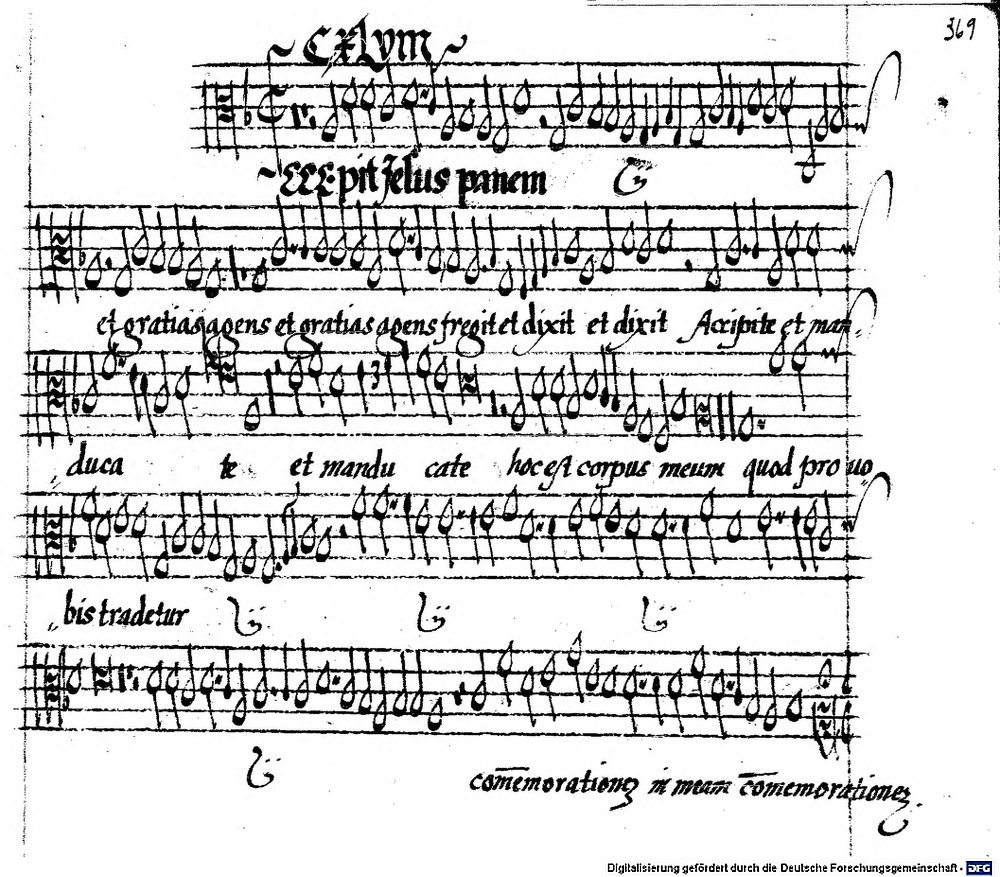 369
CCCEpit Jesus panem
et gratias agens et gratias agens fregit et dixit et dixit Accipite et man
duca te et mandu cate hoc est corpus meum quod pro uo
bis tradetur
com̅emorationeʒ in meam com̅emorationeʒ.
Digitalisierung gefördert durch die Deutsche Forschungsgemeinschaft - DFG